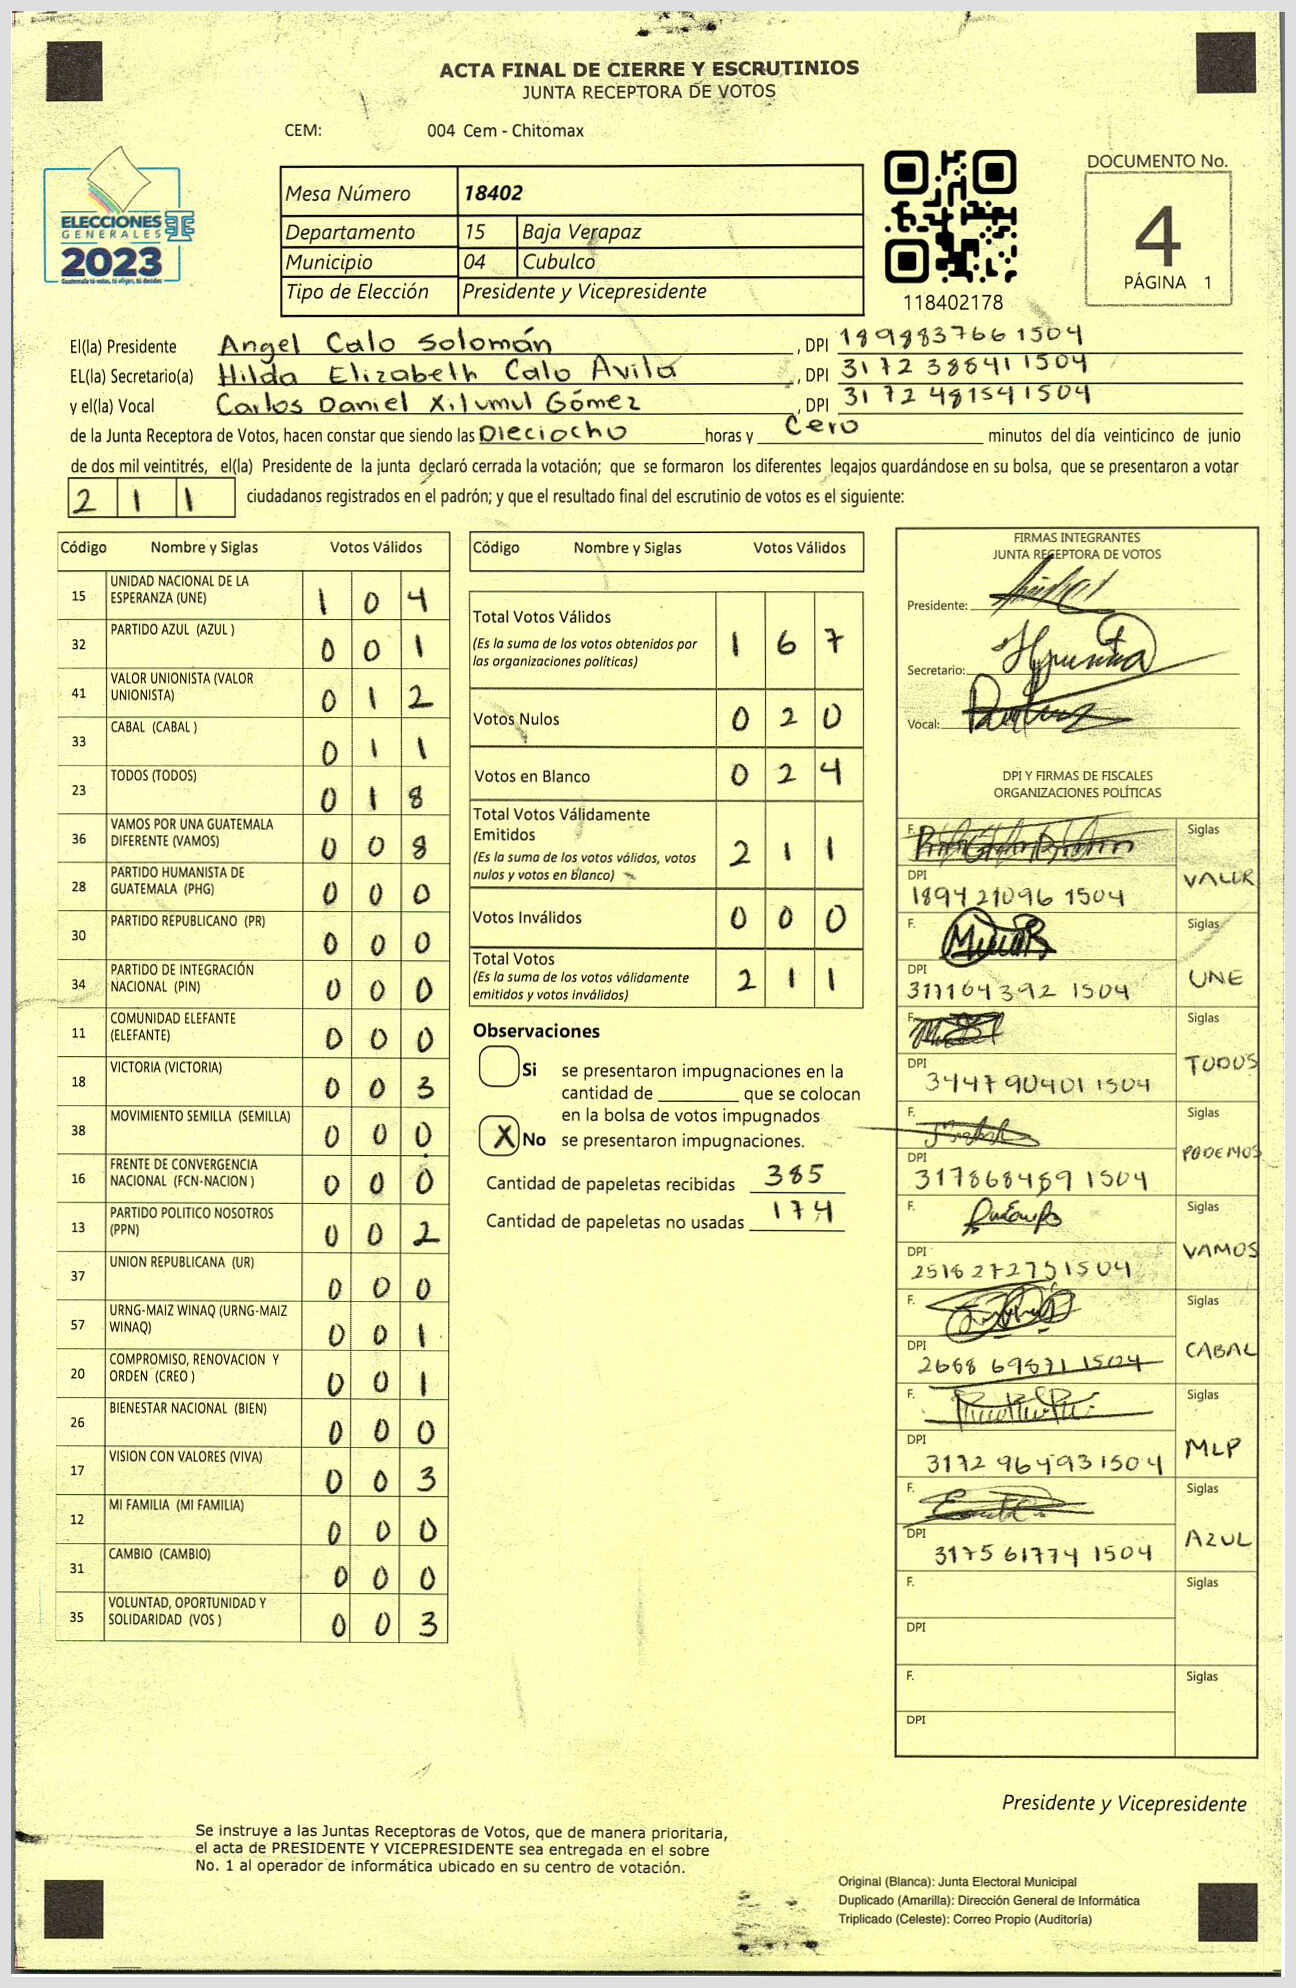 ACTA FINAL DE CIERRE Y ESCRUTINIOS
JUNTA RECEPTORA DE VOTOS
CEM: 004 Cem - Chitomax
ELECCIONES
GENERALES
2023
Guatemala tú votas, tú eliges, tú decides
Mesa Número 18402
Departamento 15 Baja Verapaz
Municipio 04 Cubulco
Tipo de Elección Presidente y Vicepresidente
118402178
DOCUMENTO No.
4
PÁGINA 1
El(la) Presidente Angel Calo Solomán, DPI 189883766 1504
EL(la) Secretario(a) Hilda Elizabeth Calo Avila, DPI 3172 38841 1504
y el(la) Vocal Carlos Daniel Xitumul Gómez, DPI 3172 48154 1504
de la Junta Receptora de Votos, hacen constar que siendo las Dieciocho horas y Cero minutos del día veinticinco de junio
de dos mil veintitrés, el(la) Presidente de la junta declaró cerrada la votación; que se formaron los diferentes legajos guardándose en su bolsa, que se presentaron a votar
2 1 1 ciudadanos registrados en el padrón; y que el resultado final del escrutinio de votos es el siguiente:
Código Nombre y Siglas Votos Válidos
15 UNIDAD NACIONAL DE LA ESPERANZA (UNE) 1 0 4
32 PARTIDO AZUL (AZUL ) 0 0 1
41 VALOR UNIONISTA (VALOR UNIONISTA) 0 1 2
33 CABAL (CABAL ) 0 1 1
23 TODOS (TODOS) 0 1 8
36 VAMOS POR UNA GUATEMALA DIFERENTE (VAMOS) 0 0 8
28 PARTIDO HUMANISTA DE GUATEMALA (PHG) 0 0 0
30 PARTIDO REPUBLICANO (PR) 0 0 0
34 PARTIDO DE INTEGRACIÓN NACIONAL (PIN) 0 0 0
11 COMUNIDAD ELEFANTE (ELEFANTE) 0 0 0
18 VICTORIA (VICTORIA) 0 0 3
38 MOVIMIENTO SEMILLA (SEMILLA) 0 0 0
16 FRENTE DE CONVERGENCIA NACIONAL (FCN-NACION ) 0 0 0
13 PARTIDO POLITICO NOSOTROS (PPN) 0 0 2
37 UNION REPUBLICANA (UR) 0 0 0
57 URNG-MAIZ WINAQ (URNG-MAIZ WINAQ) 0 0 1
20 COMPROMISO, RENOVACION Y ORDEN (CREO ) 0 0 1
26 BIENESTAR NACIONAL (BIEN) 0 0 0
17 VISION CON VALORES (VIVA) 0 0 3
12 MI FAMILIA (MI FAMILIA) 0 0 0
31 CAMBIO (CAMBIO) 0 0 0
35 VOLUNTAD, OPORTUNIDAD Y SOLIDARIDAD (VOS ) 0 0 3
Código Nombre y Siglas Votos Válidos
Total Votos Válidos 1 6 7
(Es la suma de los votos obtenidos por
las organizaciones políticas)
Votos Nulos 0 2 0
Votos en Blanco 0 2 4
Total Votos Válidamente
Emitidos 2 1 1
(Es la suma de los votos válidos, votos
nulos y votos en blanco)
Votos Inválidos 0 0 0
Total Votos 2 1 1
(Es la suma de los votos válidamente
emitidos y votos inválidos)
Observaciones
Si se presentaron impugnaciones en la
cantidad de ________ que se colocan
en la bolsa de votos impugnados
X No se presentaron impugnaciones.
Cantidad de papeletas recibidas 385
Cantidad de papeletas no usadas 174
FIRMAS INTEGRANTES
JUNTA RECEPTORA DE VOTOS
Presidente:
Secretario:
Vocal:
DPI Y FIRMAS DE FISCALES
ORGANIZACIONES POLÍTICAS
F. Siglas
DPI 1894 21096 1504 VALOR
F. Siglas
DPI 311164392 1504 UNE
F. Siglas
DPI 344790401 1504 TODOS
F. Siglas
DPI 317868489 1504 PODEMOS
F. Siglas
DPI 2518 27275 1504 VAMOS
F. Siglas
DPI 2668 69871 1504 CABAL
F. Siglas
DPI 3172 96493 1504 MLP
F. Siglas
DPI 3175 61774 1504 AZUL
F. Siglas
DPI
F. Siglas
DPI
Presidente y Vicepresidente
Se instruye a las Juntas Receptoras de Votos, que de manera prioritaria,
el acta de PRESIDENTE Y VICEPRESIDENTE sea entregada en el sobre
No. 1 al operador de informática ubicado en su centro de votación.
Original (Blanca): Junta Electoral Municipal
Duplicado (Amarilla): Dirección General de Informática
Triplicado (Celeste): Correo Propio (Auditoría)